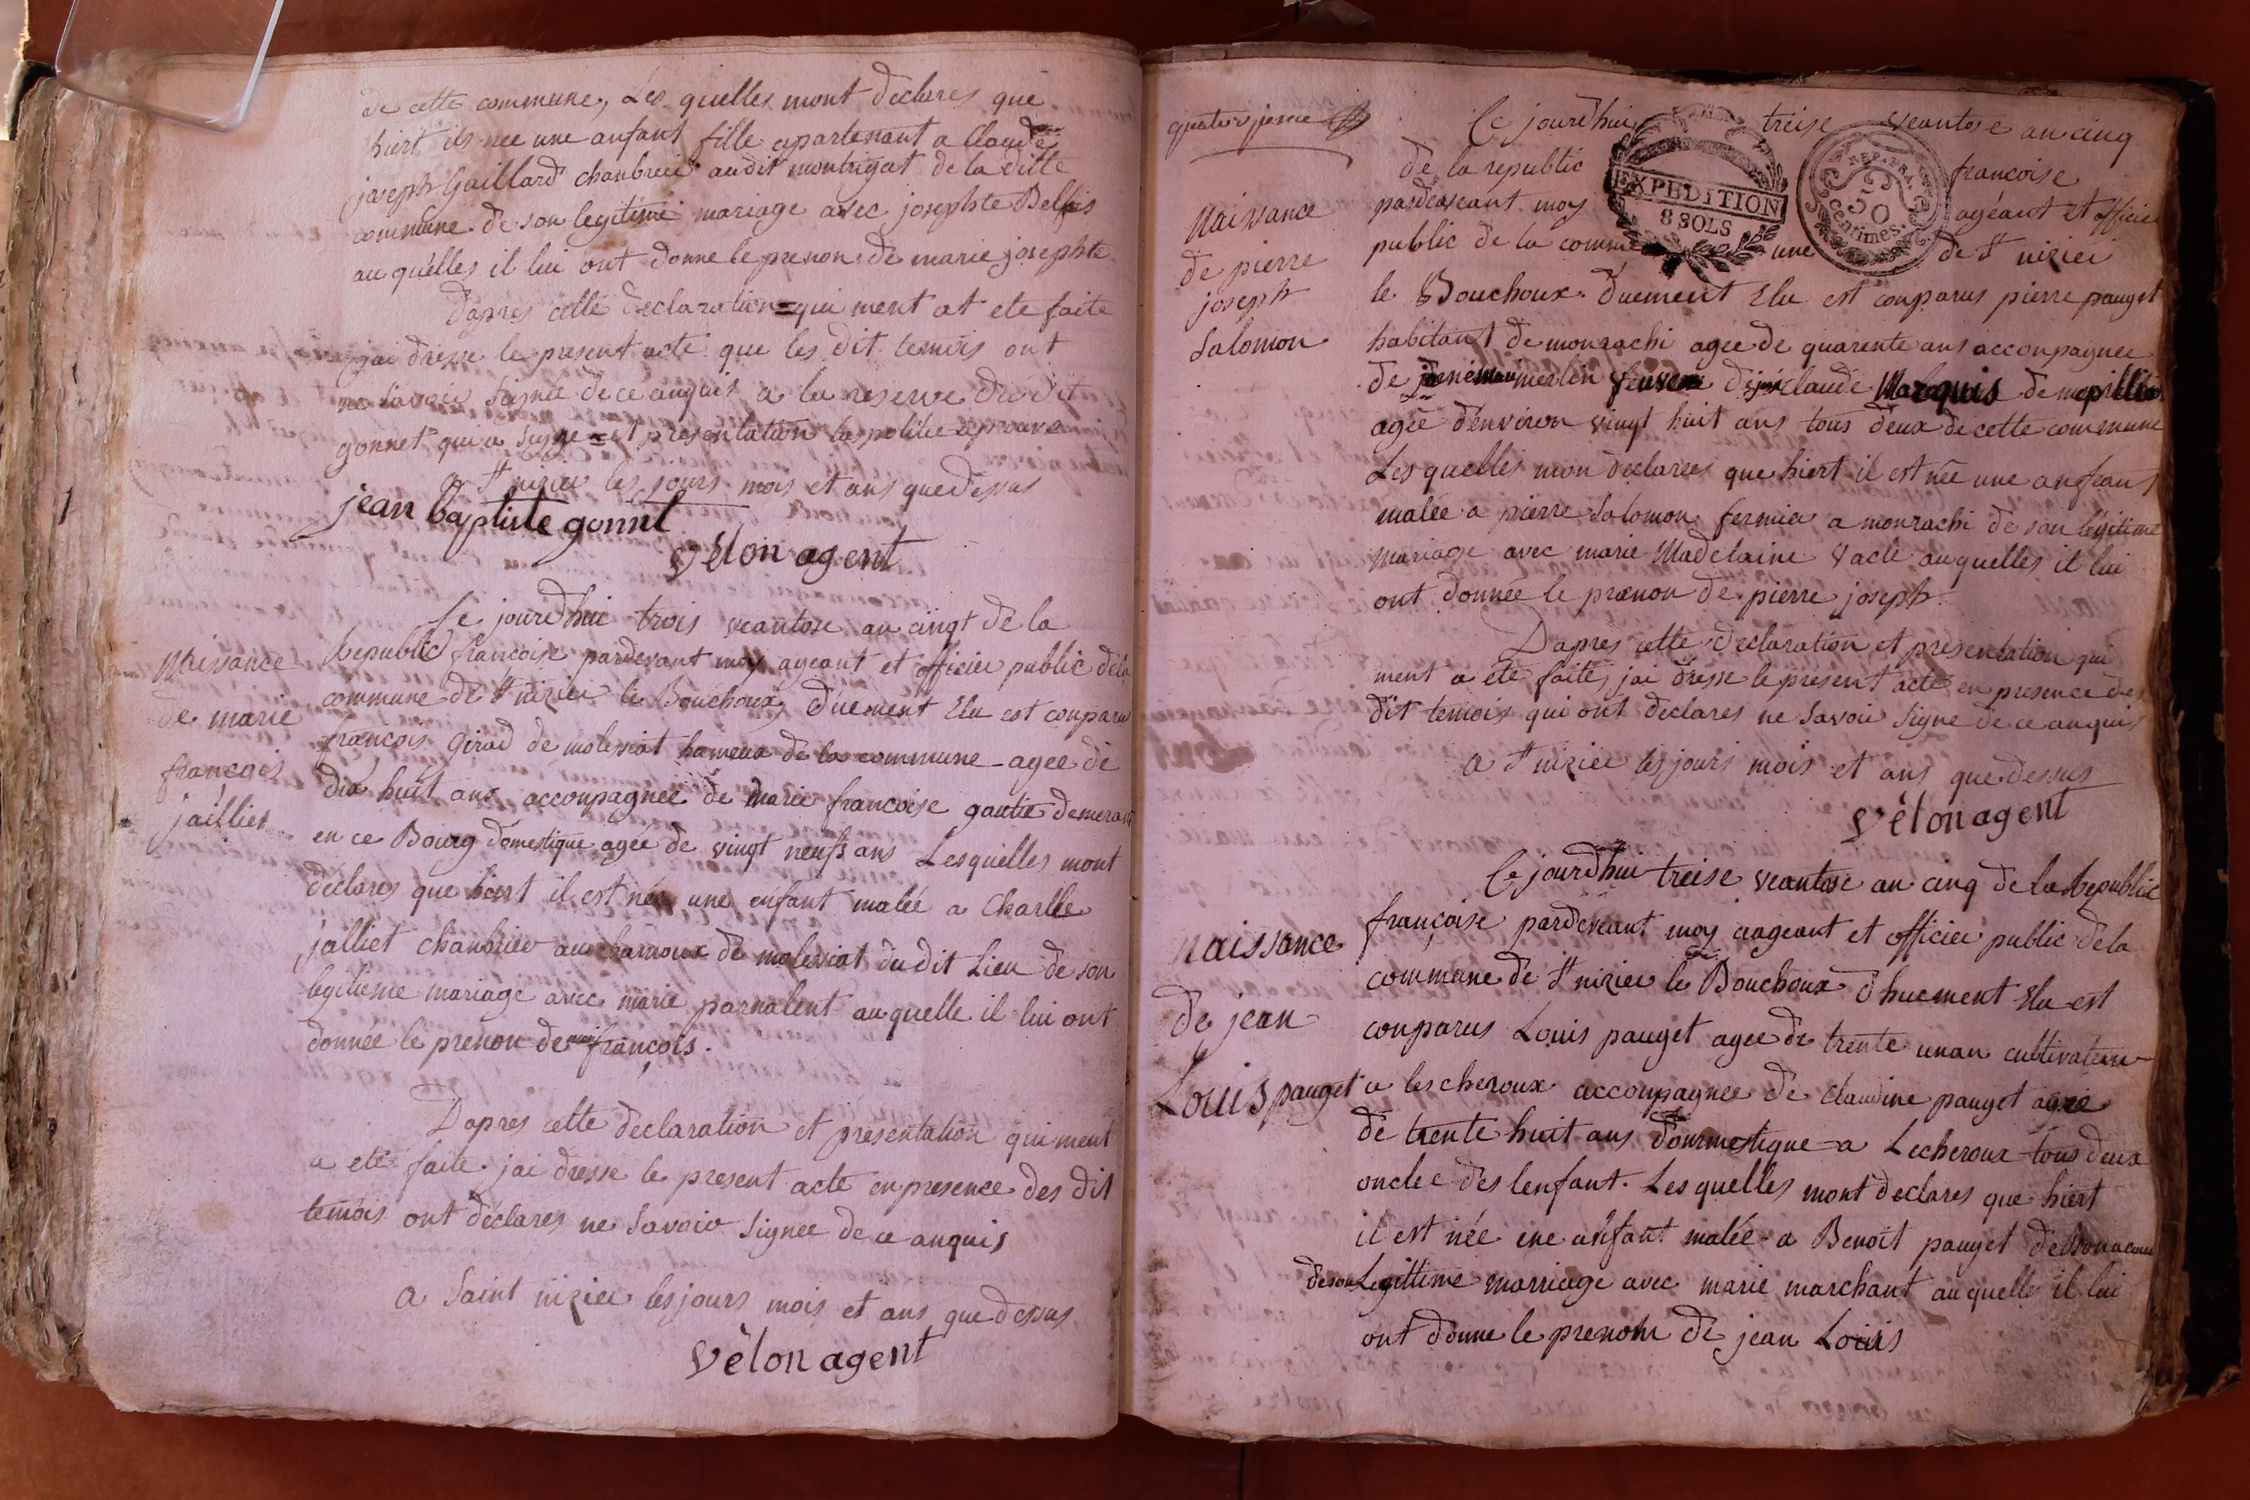 de cette commune, Les quelles mont declares que
hiert ils nee une anfant fille apartenant a Claude
joseph Gaillard chanbrier audit montrigat de la ditte
commune de son legitime mariage avec josephte
au quelles il lui ont donne le prenon de marie josephte
Dapres cette declaration qui ment at ete faite
jai dresse le present acte que les dit temois ont
de ce anquis a la reserve dudit
gonnet qui a signe et presentation
St nizier les jours mois et ans que dessus
jean baptiste gonnet
vélon agent
Naissance
de marie
françois
jaillier
Ce jourdhui trois veantose an cinqt de la
Republic francoise pardevant moy ageant et officier public dela
commune de St nizier le Bouchoux duement Elu est conparu
françois girod de molessiat hameux de la commune agee de
dix huit ans acconpagnée de marie francoise gautie demerant
en ce Bourg domestique agée de vingt neufs ans Lesquelles mont
déclares que hiert il est née une enfant malée a Charlle
jalliet chanbrier au hamoux de molessiat dudit Lieu de son
legitieme mariage avec marie parnalent au quelle il lui ont
donnée le prenon de marie françois.
Dapres cette declaration et présentation qui ment
a eté faite jai dresse le present acte en presence des dit
temois ont déclares ne savoir signee de ce anquis
a Saint nizier les jours mois et ans que dessus
vélon agent
Naissance
de pierre
joseph
Salomon
Ce jourdhui treise veantose an cinq
de la republic francoise
EXPEDITION
8 SOLS
REP. FRA.
50
centimes.
pardeveant moy ageant et officier
public de la comm une de St nizier
le Bouchoux duement Elu est conparus pierre pauget
habitant de monrachi agee de quarente ans acconpagnee
de merlen veuve claude Marquis de
agée denviron vingt huit ans tous deux de cette commune
Les quelles mon declares que hiert il est née une anfeant
malée a pierre Salomon fermier a monrachi de son legitime
mariage avec marie Madelaine vacle auquelles il lui
ont donnée le prænon de pierre joseph.
Dapres cette declaration et présentation qui
ment a éte faite jai dresse le present acte en presence des
dit temois qui ont declares ne savoir signe de ce anquis
a St nizier les jours mois et ans que dessus
vélon agent
naissance
de jean
Louis pauget
Ce jourdhui treise veantose an cinq de la Republic
françoise pardeveant moy ageant et officier public de la
commune de St nizier le Bouchoux dhuement Elu est
conparus Louis pauget agee de trente unan cultivateur
a lescheroux acconpagnee de claudine pauget agée
de trente huit ans dommestique a Lecheroux tous deux
oncle des lenfant. Les quelles mont declares que hiert
il est née une anfant malée a Benoit pauget
de son Legittime marriage avec marie marchant auquelle il lui
ont donne le prenom de jean Louis